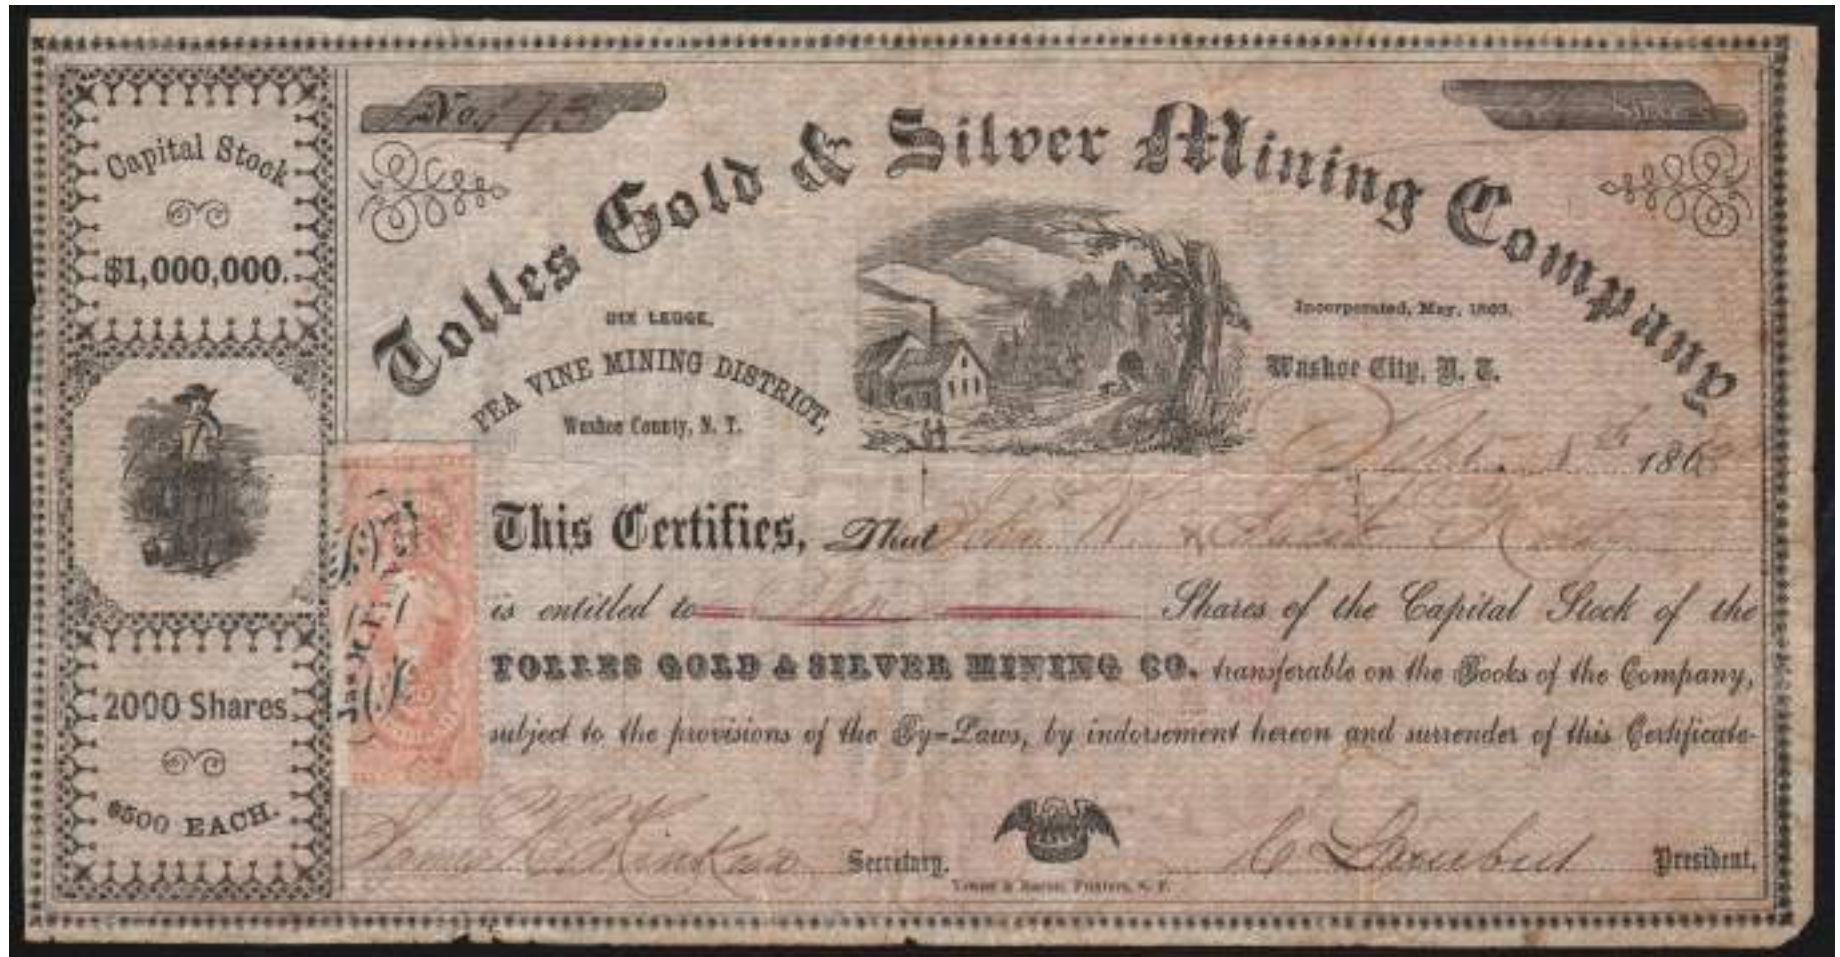 Capital Stock
$1,000,000.
2000 Shares
$500 EACH.
No. 173
Tolles Gold & Silver Mining Company
DIX LEDGE,
PEA VINE MINING DISTRICT,
Washoe County, N. T.
Incorporated, May, 1863.
Washoe City, N. T.
Sept. 8th 186
This Certifies, That John W. &
is entitled to Shares of the Capital Stock of the
TOLLES GOLD & SILVER MINING CO. transferable on the Books of the Company,
subject to the provisions of the By-Laws, by indorsement hereon and surrender of this Certificate-
Secretary.
President.
Printers, S. F.